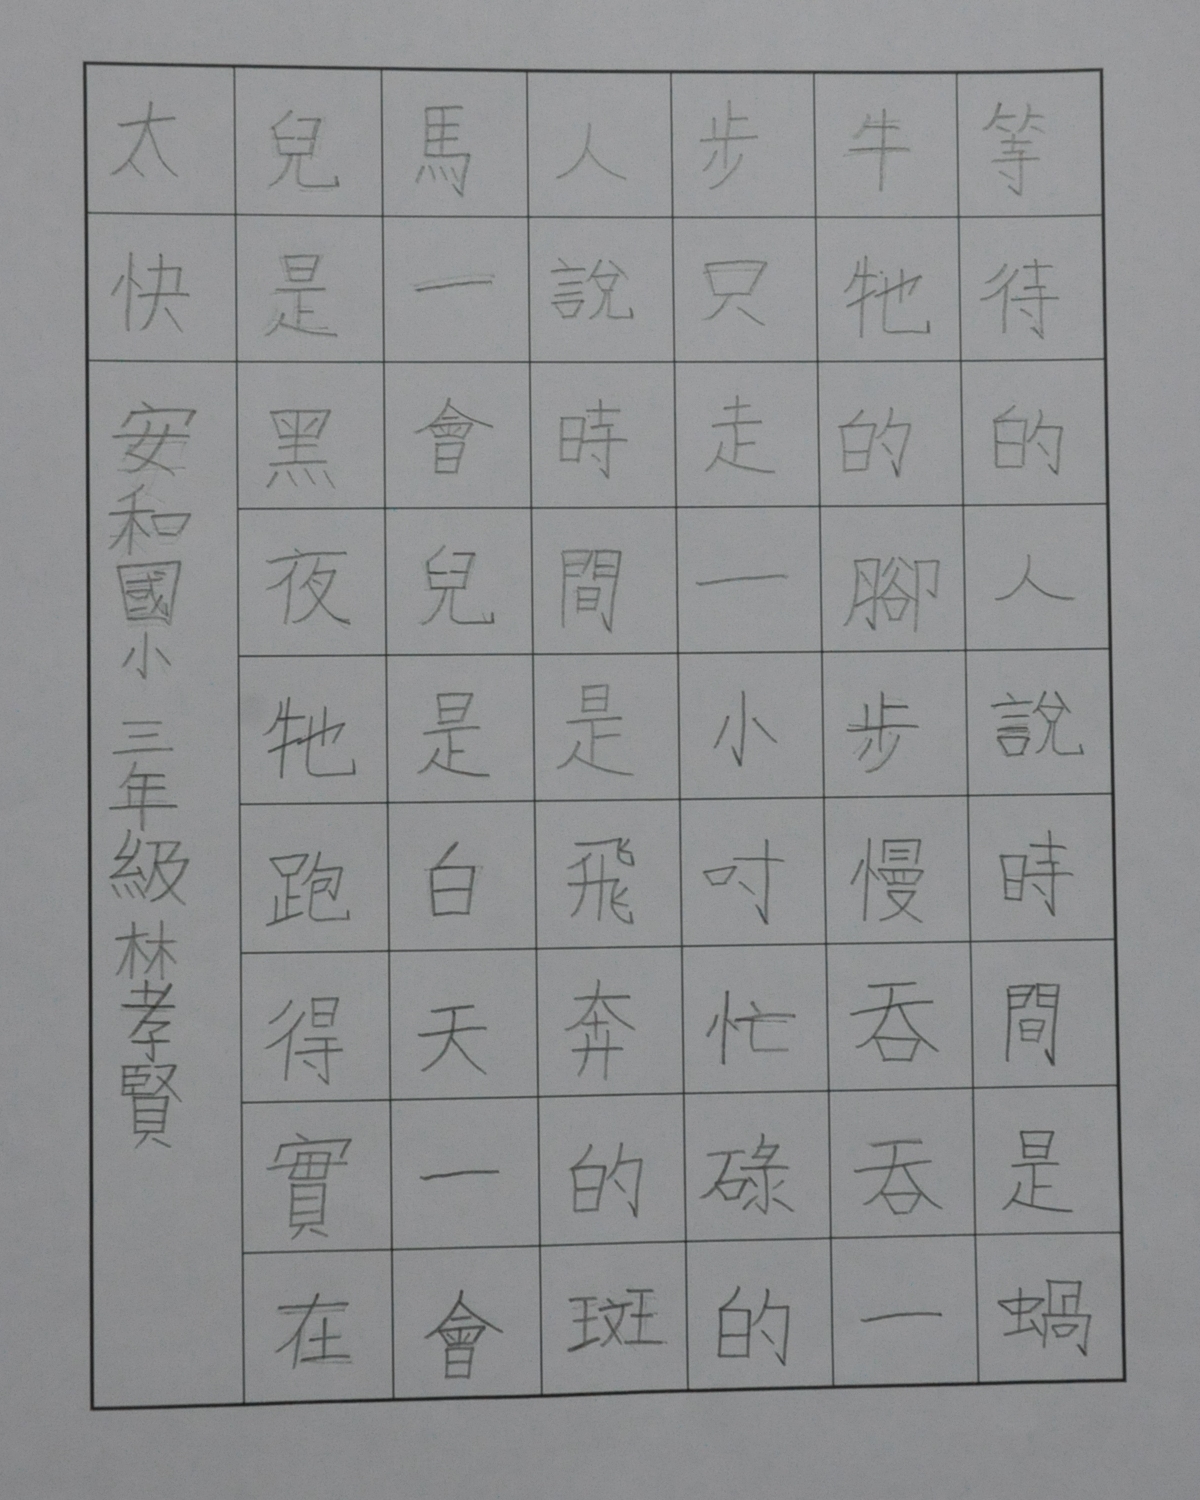 等待的人說時間是蝸
牛牠的腳步慢吞吞一
步只走一小步吋忙碌的
人說時間是飛奔的斑
馬一會兒是白天一會
兒是黑夜牠跑得實在
太快
安和國小 三年級 林孝賢